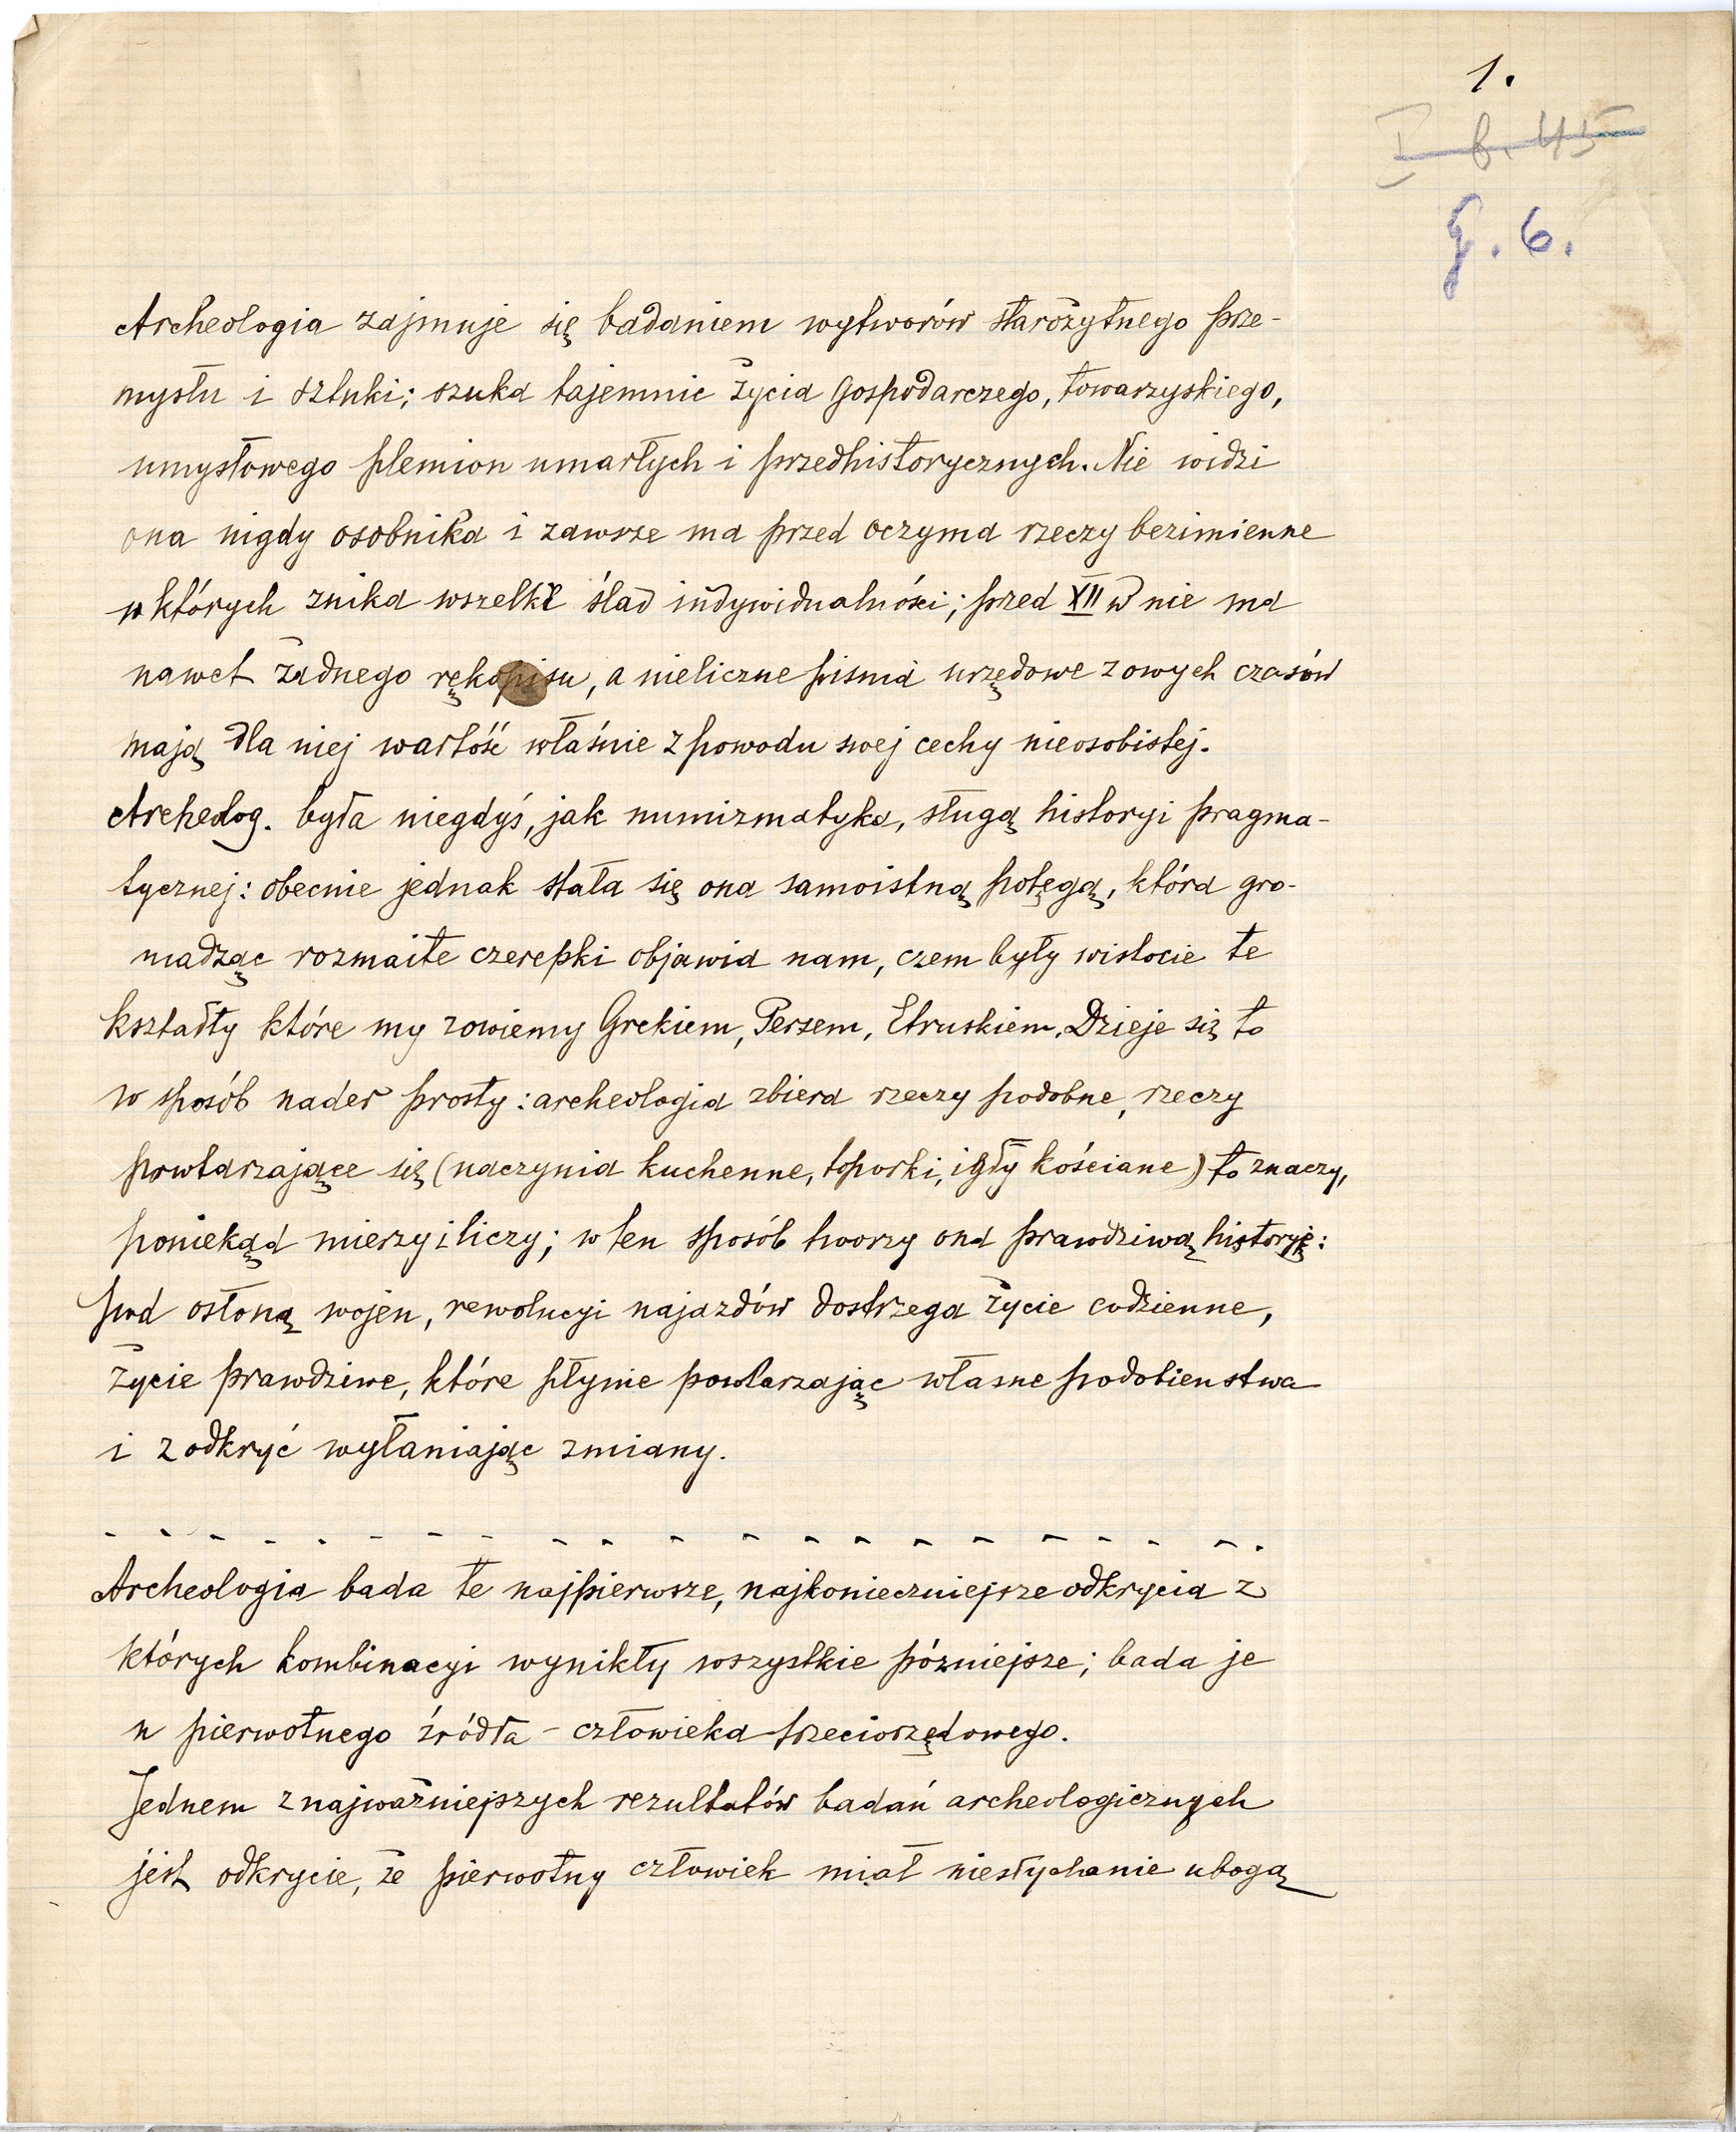 1.
I b. 45
G. 6.
Archeologia zajmuje się badaniem wytworów starożytnego prze-
mysłu i sztuki; szuka tajemnic życia gospodarczego, towarzyskiego,
umysłowego plemion umarłych i przedhistorycznych. Nie widzi
ona nigdy osobnika i zawsze ma przed oczyma rzeczy bezimienne
w których znika wszelki ślad indywidualności; przed XII w nie ma
nawet żadnego rękopisu, a nieliczne pisma urzędowe z owych czasów
mają dla niej wartość właśnie z powodu swej cechy nieosobistej.
Archeolog. była niegdyś, jak numizmatyka, sługą historyi pragma-
tycznej: obecnie jednak stała się ona samoistną potęgą, która gro-
madząc rozmaite czerepki objawia nam, czem były wistocie te
kształty które my zowiemy Grekiem, Persem, Etruskiem. Dzieje się to
w sposób nader prosty: archeologia zbiera rzeczy podobne, rzeczy
powtarzające się (naczynia kuchenne, toporki, igły kościane) to znaczy,
poniekąd mierzy i liczy; w ten sposób tworzy ona prawdziwą historyę:
pod osłoną wojen, rewolucyi najazdów dostrzega życie codzienne,
życie prawdziwe, które płynie powtarzając własne podobienstwa
i z odkryć wyłaniając zmiany.
- - - - - - - - - - - - - - - - - - - -
Archeologia bada te najpierwsze, najkonieczniejsze odkrycia z
których kombinacyi wynikły wszystkie pózniejsze; bada je
u pierwotnego źródła - człowieka trzeciorzędowego.
Jednem z najważniejszych rezultatów badań archeologicznych
jest odkrycie, że pierwotny człowiek miał niesłychanie ubogą